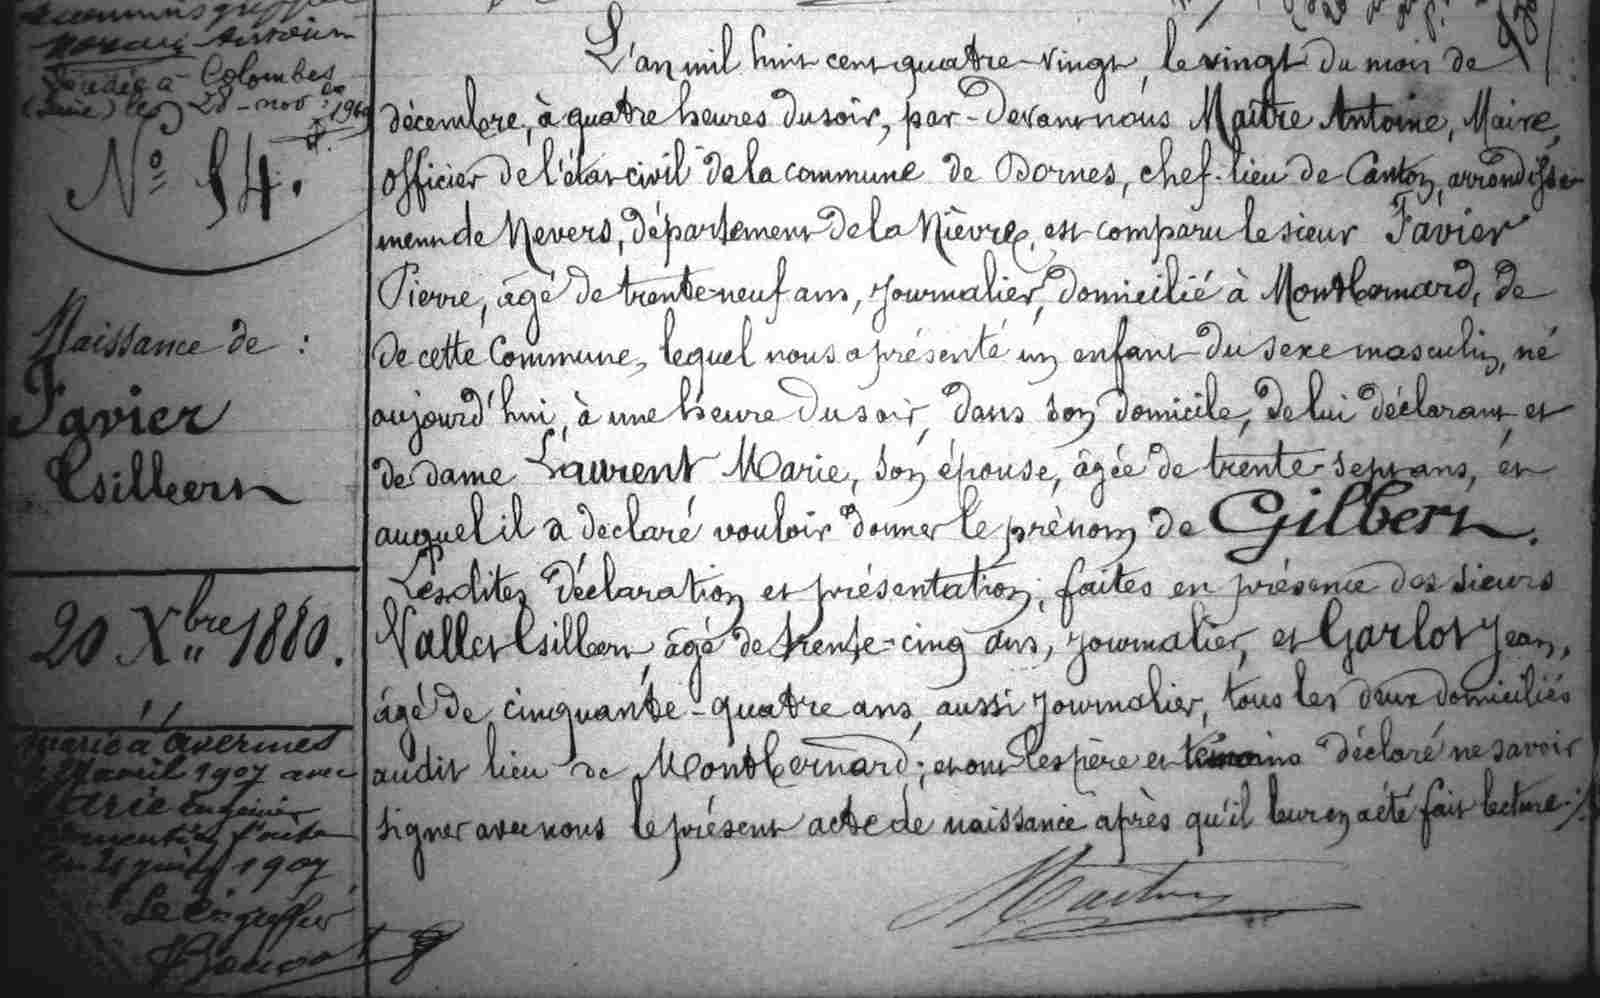 Décédé à Colombes
(Seine) le 28 - nov
N° 54.
Naissance de :
Favier
Gilbert
20 Xbre 1880.
Marié à Avermes
avril 1907 avec
Marie
1907
Le Cis greffier
L'an mil huit cent quatre-vingt, le vingt du mois de
décembre, à quatre heures du soir, par-devant nous Maître Antoine, Maire,
officier de l'état civil de la commune de Dornes, chef-lieu de Canton, arrondisse-
ment de Nevers, département de la Nièvre, est comparu le sieur Favier
Pierre, âgé de trente-neuf ans, journalier, domicilié à Montbernard, de
de cette Commune, lequel nous a présenté un enfant du sexe masculin, né
aujourd'hui, à une heure du soir, dans son domicile, de lui déclarant, et
de dame Laurent Marie, son épouse, âgée de trente-sept ans, et
auquel il a déclaré vouloir donner le prénom de Gilbert.
Lesdites déclaration et présentation, faites en présence des sieurs
Vallet Gilbert, âgé de trente-cinq ans, journalier, et Garlot Jean,
âgé de cinquante-quatre ans, aussi journalier, tous les deux domiciliés
audit lieu de Montbernard ; et ont les père et témoins déclaré ne savoir
signer avec nous le présent acte de naissance après qu'il leur en a été fait lecture ./.